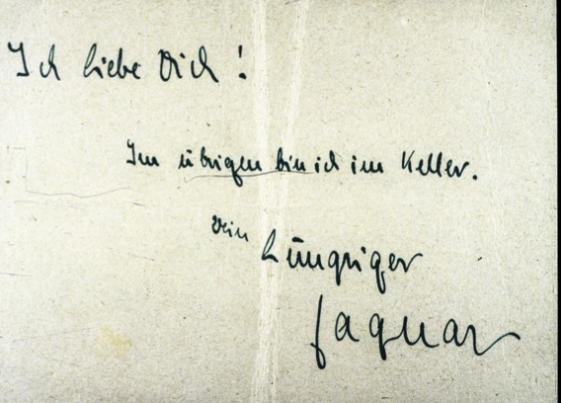 Ich liebe Dich!
Im übrigen bin ich im Keller.
Dein hungriger
Jaguar